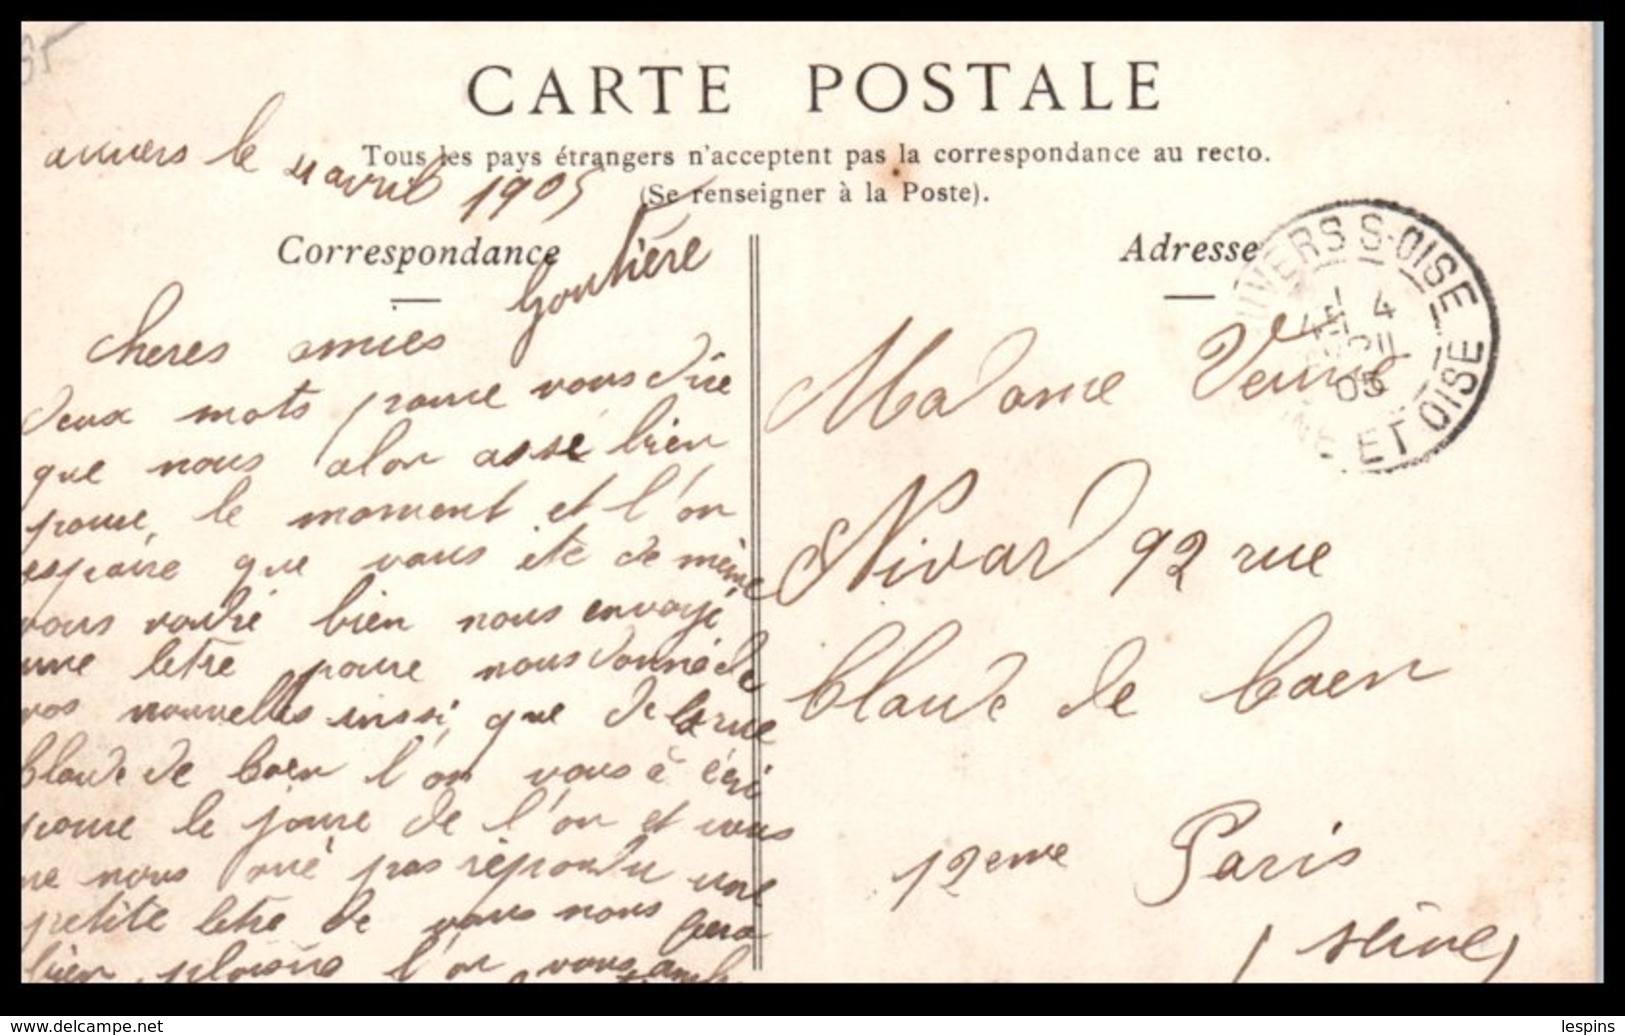 95
CARTE POSTALE
Tous les pays étrangers n'acceptent pas la correspondance au recto.
(Se renseigner à la Poste).
Correspondance
Adresse
auvers le 4 avril 1905
Goutière
AUVERS S-OISE
4
AVRIL
05
SEINE ET OISE
cheres amies
deux mots poure vous dire
que nous alon assé bien
poure, le moment et l'on
espaire que vous ite de même
vous voudré bien nous envoyé
une letre poure nous donné de
vos nouvelles inssi, que de la rue
Claude de Caen l'on vous à écri
poure le joure de l'on et vous
ne nous avé pas répondu une
petite letre de vous nous fera
bien plaisire l'on vous amb
Madame Veuve
Nivard 92 rue
Claude de Caen
12eme Paris
(Seine)
lespins
www.delcampe.net